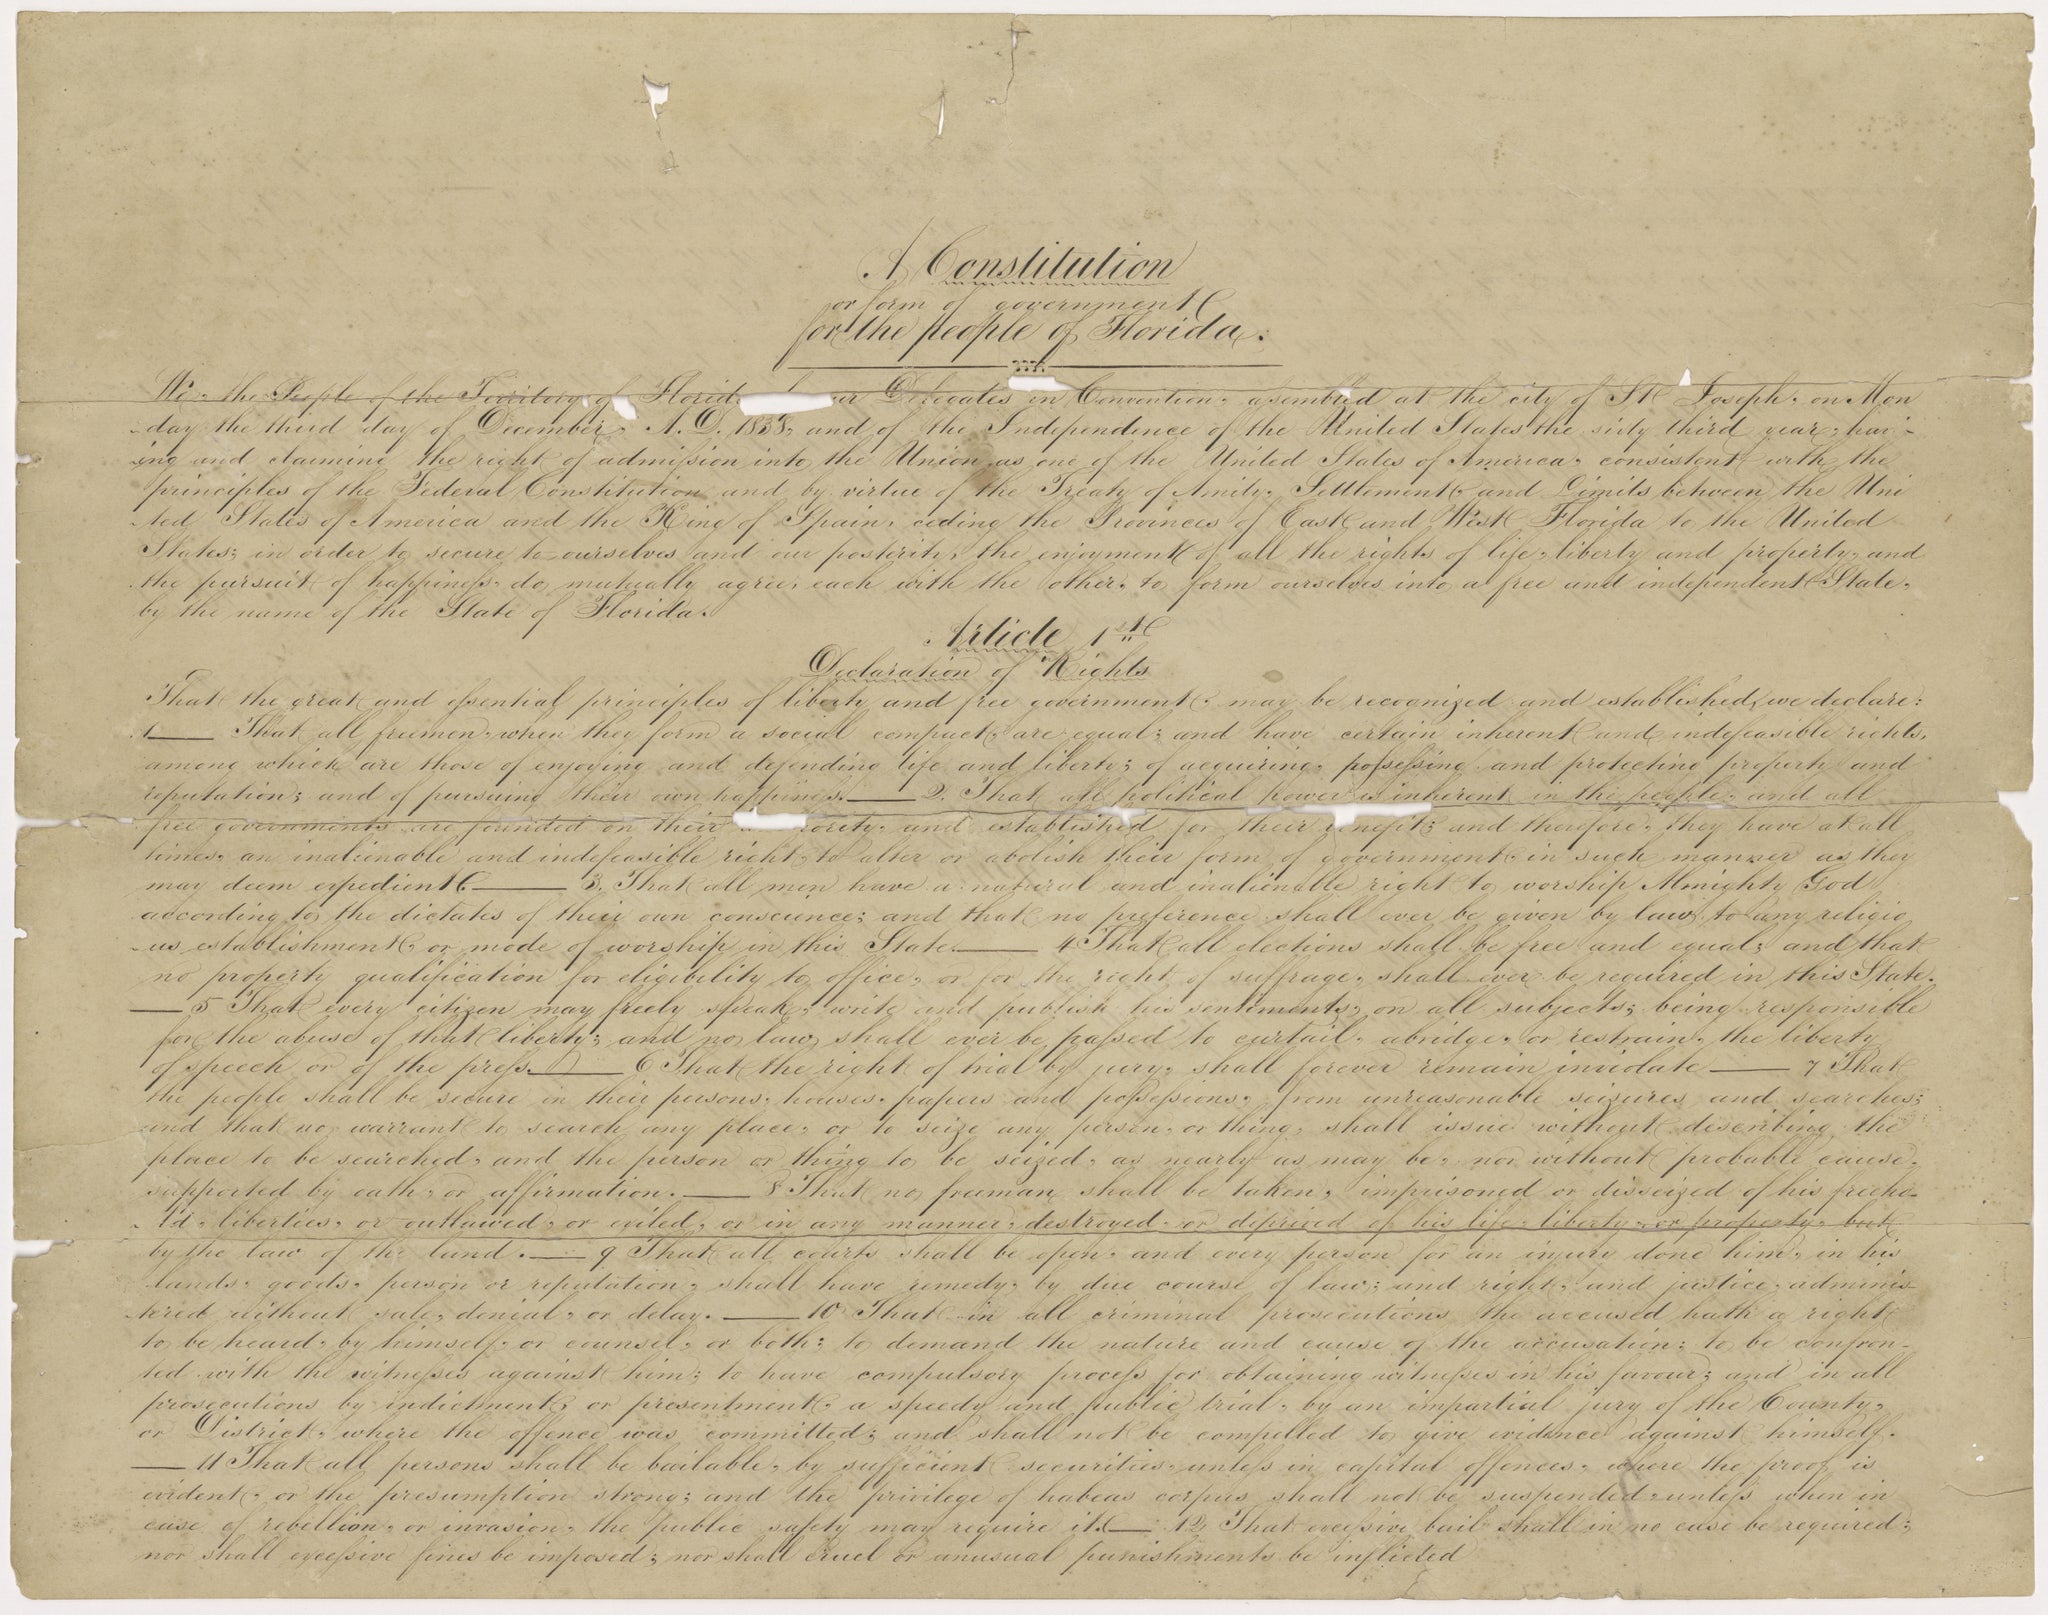 A Constitution
or form of government
for the people of Florida.
We, the People of the Territory of Florida our Delegates in Convention, assembled at the city of St Joseph, on Mon
-day the third day of December, A.D. 1838, and of the Independence of the United States the sixty third year, hav-
-ing and claiming the right of admission into the Union, as one of the United States of America, consistent with the
principles of the Federal Constitution and by virtue of the Treaty of Amity, Settlement, and Limits between the Uni
-ted States of America and the King of Spain, ceding the Provinces of East and West Florida to the United
States; in order to secure to ourselves and our posterity, the enjoyment of all the rights of life, liberty and property, and
the pursuit of happiness, do mutually agree, each with the other, to form ourselves into a free and independent State,
by the name of the State of Florida.
Article 1st
Declaration of Rights
That the great and essential principles of liberty and free government, may be recognized and established, we declare:
1 — That all freemen, when they form a social compact, are equal; and have certain inherent and indefeasible rights,
among which are those of enjoying and defending life and liberty; of acquiring, possessing and protecting property and
reputation; and of pursuing their own happiness. — 2. That all political power is inherent in the people, and all
free governments are founded on their authority, and established for their benefit; and therefore, they have at all
times, an inalienable and indefeasible right, to alter or abolish their form of government, in such manner as they
may deem expedient. — 3. That all men have a natural and inalienable right to worship Almighty God
according to the dictates of their own conscience; and that no preference shall ever be given by law, to any religio
-us establishment, or mode of worship in this State. — 4 That all elections shall be free and equal; and that
no property qualification for eligibility to office, or for the right of suffrage, shall ever be required in this State.
— 5 That every citizen may freely speak, write and publish his sentiments, on all subjects; being responsible
for the abuse of that liberty; and no law, shall ever be passed to curtail, abridge, or restrain, the liberty
of speech or of the press. — 6 That the right of trial by jury, shall forever remain inviolate — 7 That
the people shall be secure in their persons, houses, papers and possessions, from unreasonable seizures and searches;
and that no warrant to search any place, or to seize any person, or thing, shall issue without describing the
place to be searched, and the person or thing to be seized, as nearly as may be, nor without probable cause,
supported by oath, or affirmation. — 8 That no freeman shall be taken, imprisoned or disseized of his freeho-
-ld, liberties, or outlawed, or exiled, or in any manner, destroyed or deprived of his life, liberty, or property, but
by the law of the land. — 9 That all courts shall be open, and every person for an injury done him, in his
lands, goods, person or reputation, shall have remedy, by due course of law; and right, and justice, adminis-
-tered without sale, denial, or delay. — 10 That in all criminal prosecutions the accused hath a right
to be heard, by himself, or counsel, or both; to demand the nature and cause of the accusation; to be confron-
ted with the witnesses against him; to have compulsory process for obtaining witnesses in his favour; and in all
prosecutions by indictment, or presentment, a speedy and public trial, by an impartial jury of the County,
or District, where the offence was committed; and shall not be compelled to give evidence against himself.
— 11 That all persons shall be bailable, by sufficient securities, unless in capital offences, where the proof is
evident, or the presumption strong; and the privilege of habeas corpus shall not be suspended, unless when in
case of rebellion, or invasion, the public safety may require it. — 12 That excessive bail shall in no case be required;
nor shall excessive fines be imposed; nor shall cruel or unusual punishments be inflicted